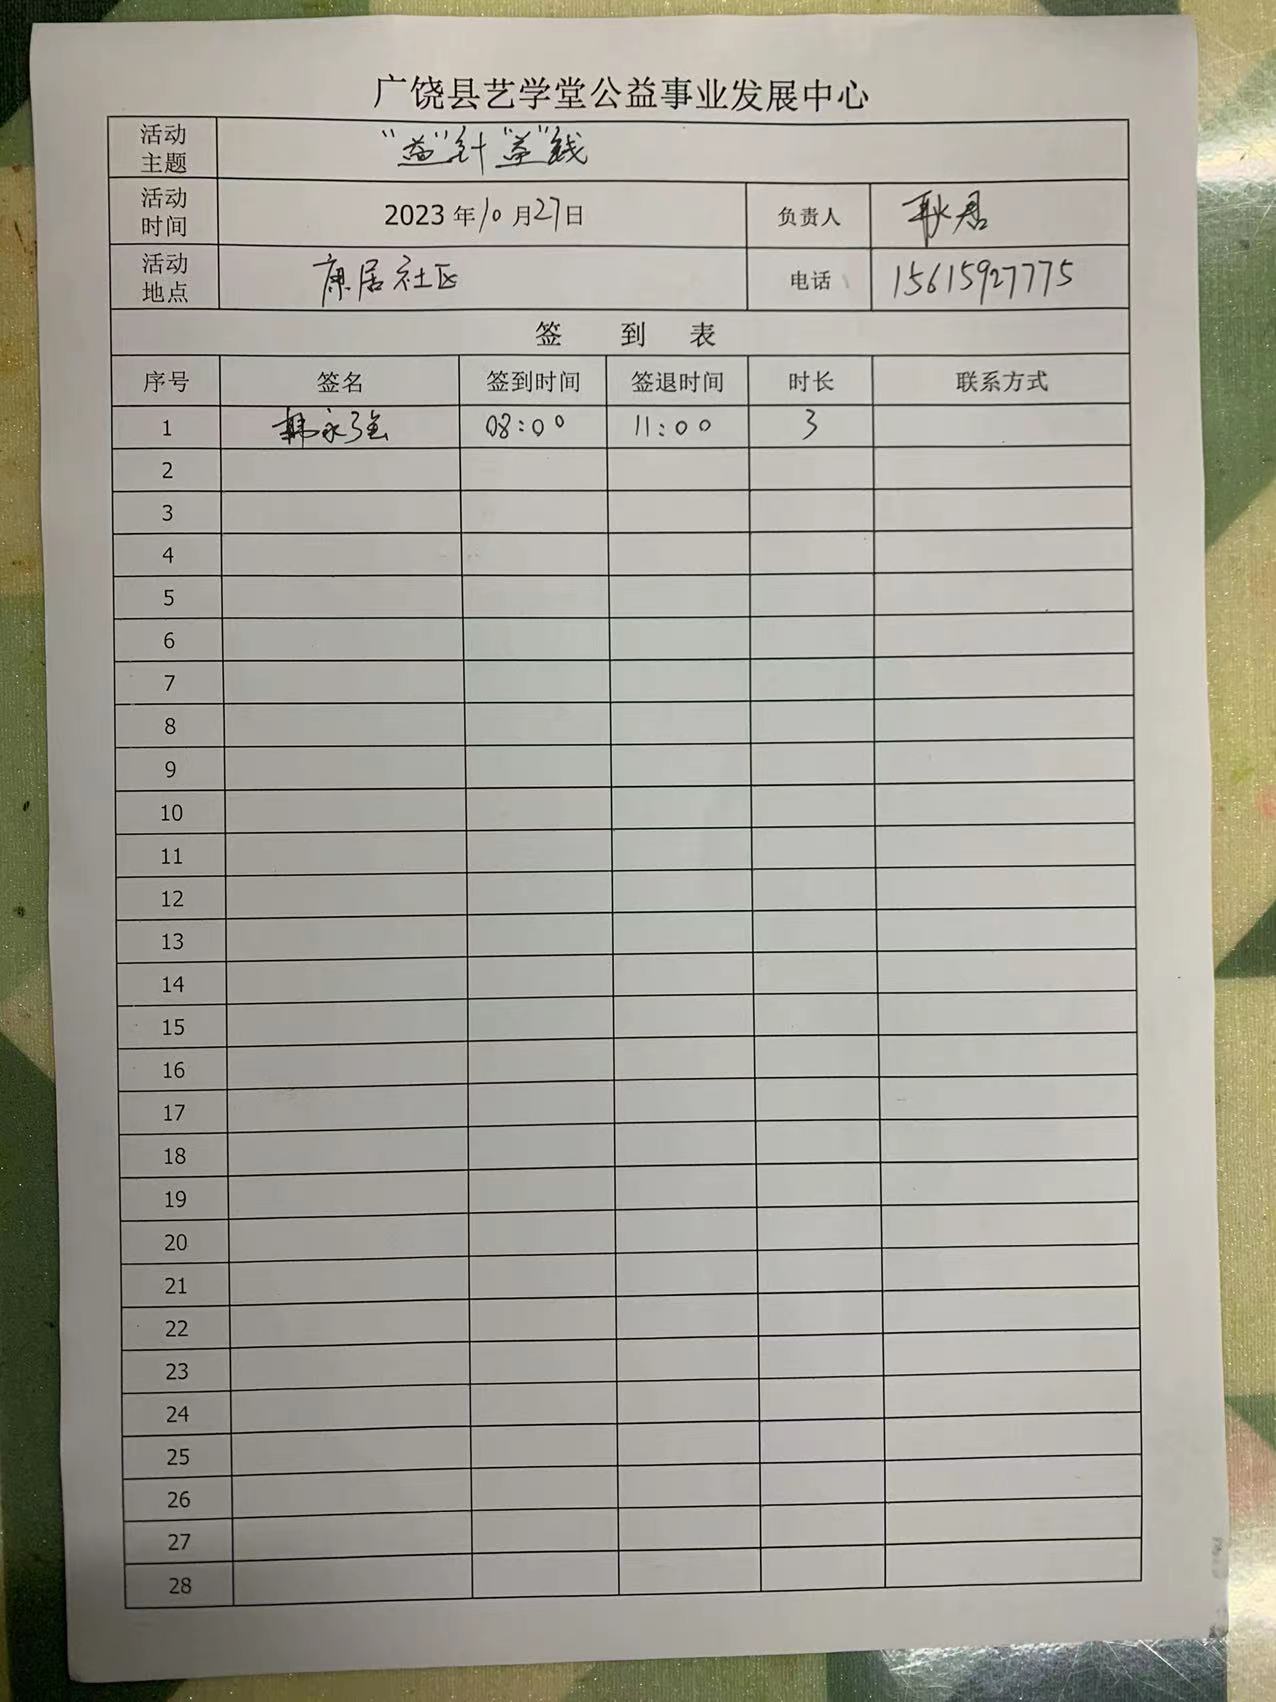 广饶县艺学堂公益事业发展中心
活动主题 “益”针“益”线
活动时间 2023年10月27日 负责人
活动地点 康居社区 电话 15615927775
签 到 表
序号 签名 签到时间 签退时间 时长 联系方式
1 韩永强 08:00 11:00 3
2
3
4
5
6
7
8
9
10
11
12
13
14
15
16
17
18
19
20
21
22
23
24
25
26
27
28